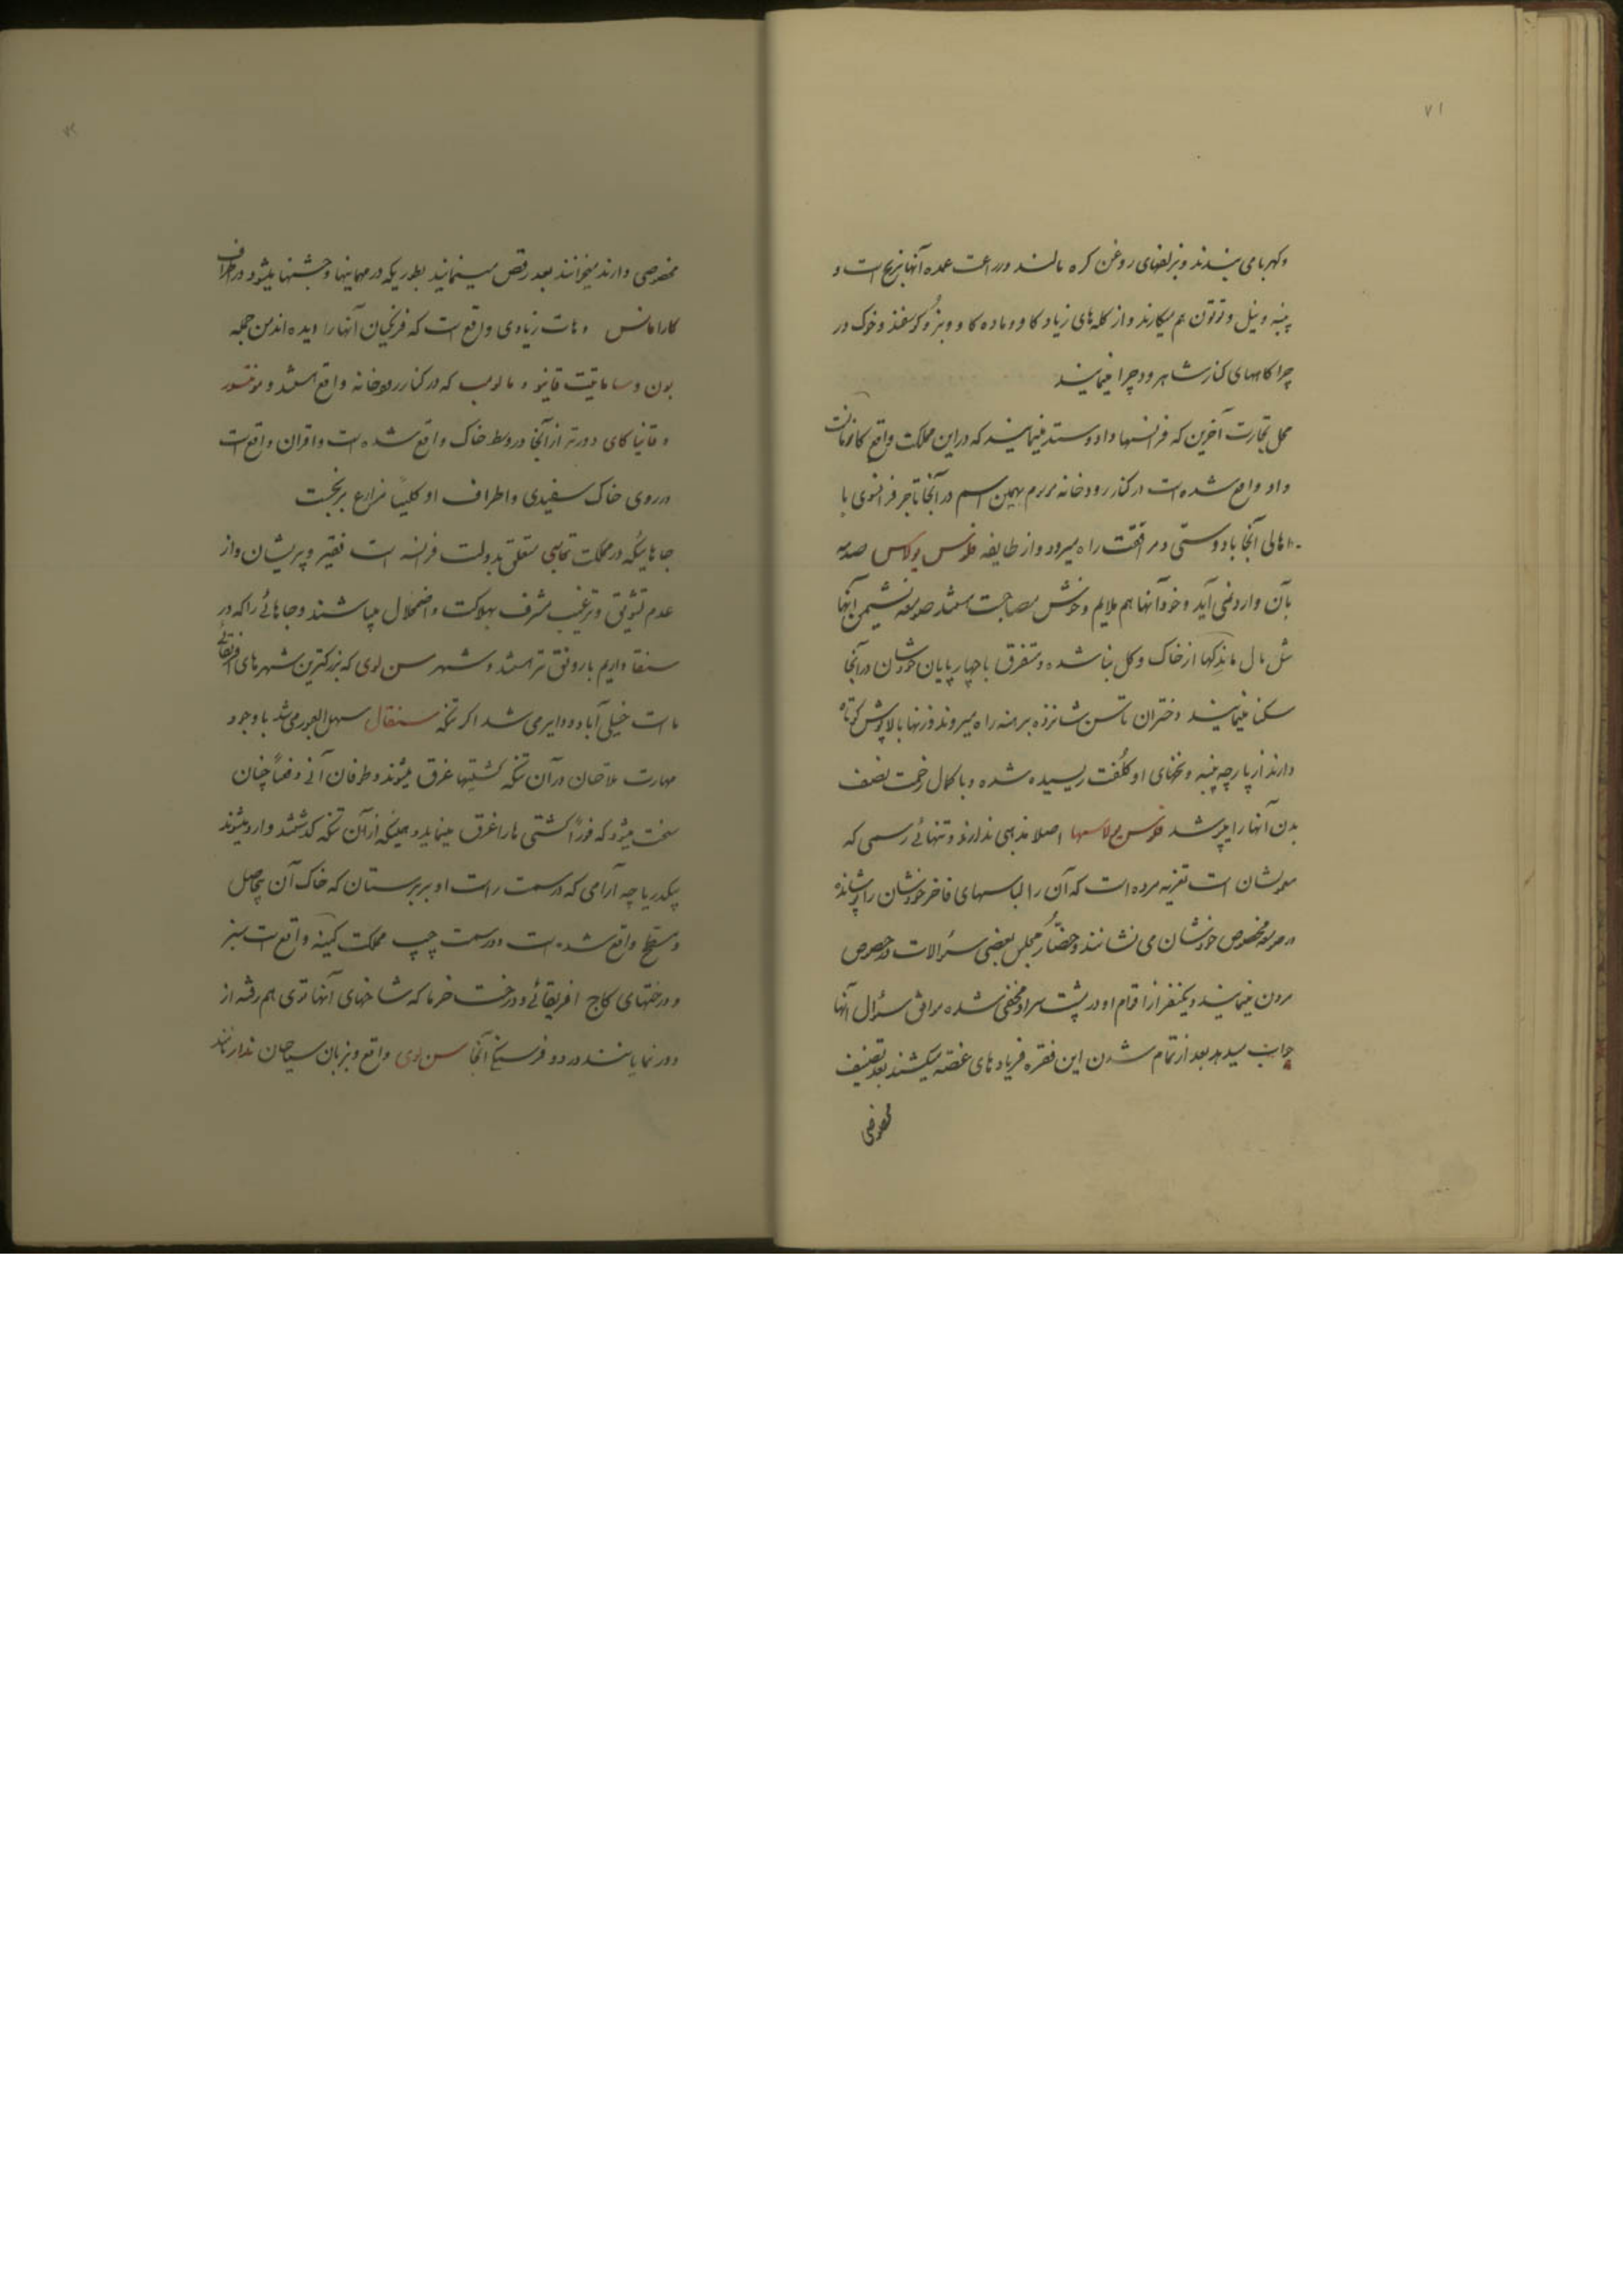 ۷۱
وکهربا می بندند و بزلفهای روغن کره مالند وزراعت عمده آنها برنج است و
پنبه و نیل و توتون هم میکارند و از کله های زیاد کاو و ماده کاو و بز و کوسفند و خوک در
چراکاههای کنار شاهرود چرا مینمایند
محل تجارت آخرین که فرانسها داد و ستد مینمایند که در این مملکت واقع
واو واقع شده است در کنار رودخانه بهمین اسم در آنجا تاجر فرانسوی با
اهالی آنجا با دوستی و مرافقت راه میرود و از طایفه فلوس یولاس صدمه
بآن وارد نمی آید و خود آنها هم ملایم و خوش مصاحبت هستند صومعه نشیمن آنها
مثل مال ماندکها از خاک و کل بنا شده و متفرق با چهارپایان خودشان در آنجا
سکنا مینمایند دختران تا سن شانزده برهنه راه میروند و زنها بالاپوش کوتاه
دارند از پارچه پنبه و نخهای او کلفت ریسیده شده و با کمال زحمت نصف
بدن آنها را میپوشد فلوس یولاسها اصلا مذهبی ندارند و تنهائے رسمی که
معمولشان است تعزیه مرده است که آن را لباسهای فاخر خودشان را پوشانده
در صومعه مخصوص خودشان می نشانند و حضار مجلس بعضی سؤالات در خصوص
مردن مینمایند و یکنفر از اقوام او در پشت سر او مخفی شده موافق سؤال آنها
جواب میدهد بعد از تمام شدن این فقره فریادهای غصه میکشند بعد تصنیف
مخصوصی
مخصوصی دارند میخوانند بعد رقص مینمایند بطوریکه در مهمانیها و جشنها میشود و در اطراف
کارامانس دهات زیادی واقع است که فرنکیان آنها را دیده اند من جمله
بون و ساماتیت قانیو و مالومب که در کنار رودخانه واقع هستند و مونتسور
و قانیاکای دورتر از آنجا در وسط خاک واقع شده است و اقران واقع است
در روی خاک سفیدی و اطراف او کلیتاً مزارع برنجست
جاهائیکه در مملکت تحاسی متعلق بدولت فرانسه است فقیر و پریشان و از
عدم تشویق و ترغیب مشرف بهلاکت و اضمحلال میباشند و جاهائے را که در
سنقا داریم با رونق تر هستند و شهر سن لوی که بزرکترین شهرهای افریقائے
ما است خیلی آباد و دایر می شد اکر تنکه سنقال سهل العبور می شد با وجود
مهارت ملاحان در آن تنکه کشتیها غرق میشوند و طوفان آنے دفعتاً چنان
سخت میشود که فوراً کشتی ها را غرق مینماید و همینکه از آن تنکه کذشتند وارد میشوند
بیکدریاچه آرامی که در سمت راست او بربرستان که خاک آن بیحاصل
و مسطح واقع شده است و در سمت چپ مملکت کینه واقع است سبز
و درختهای کاج افریقائے و درخت خرما که شاخهای آنها توی هم رفته از
دور نمایانند در دو فرسخے آنجا سن لوی واقع و بزبان سیاحان ندارمانند